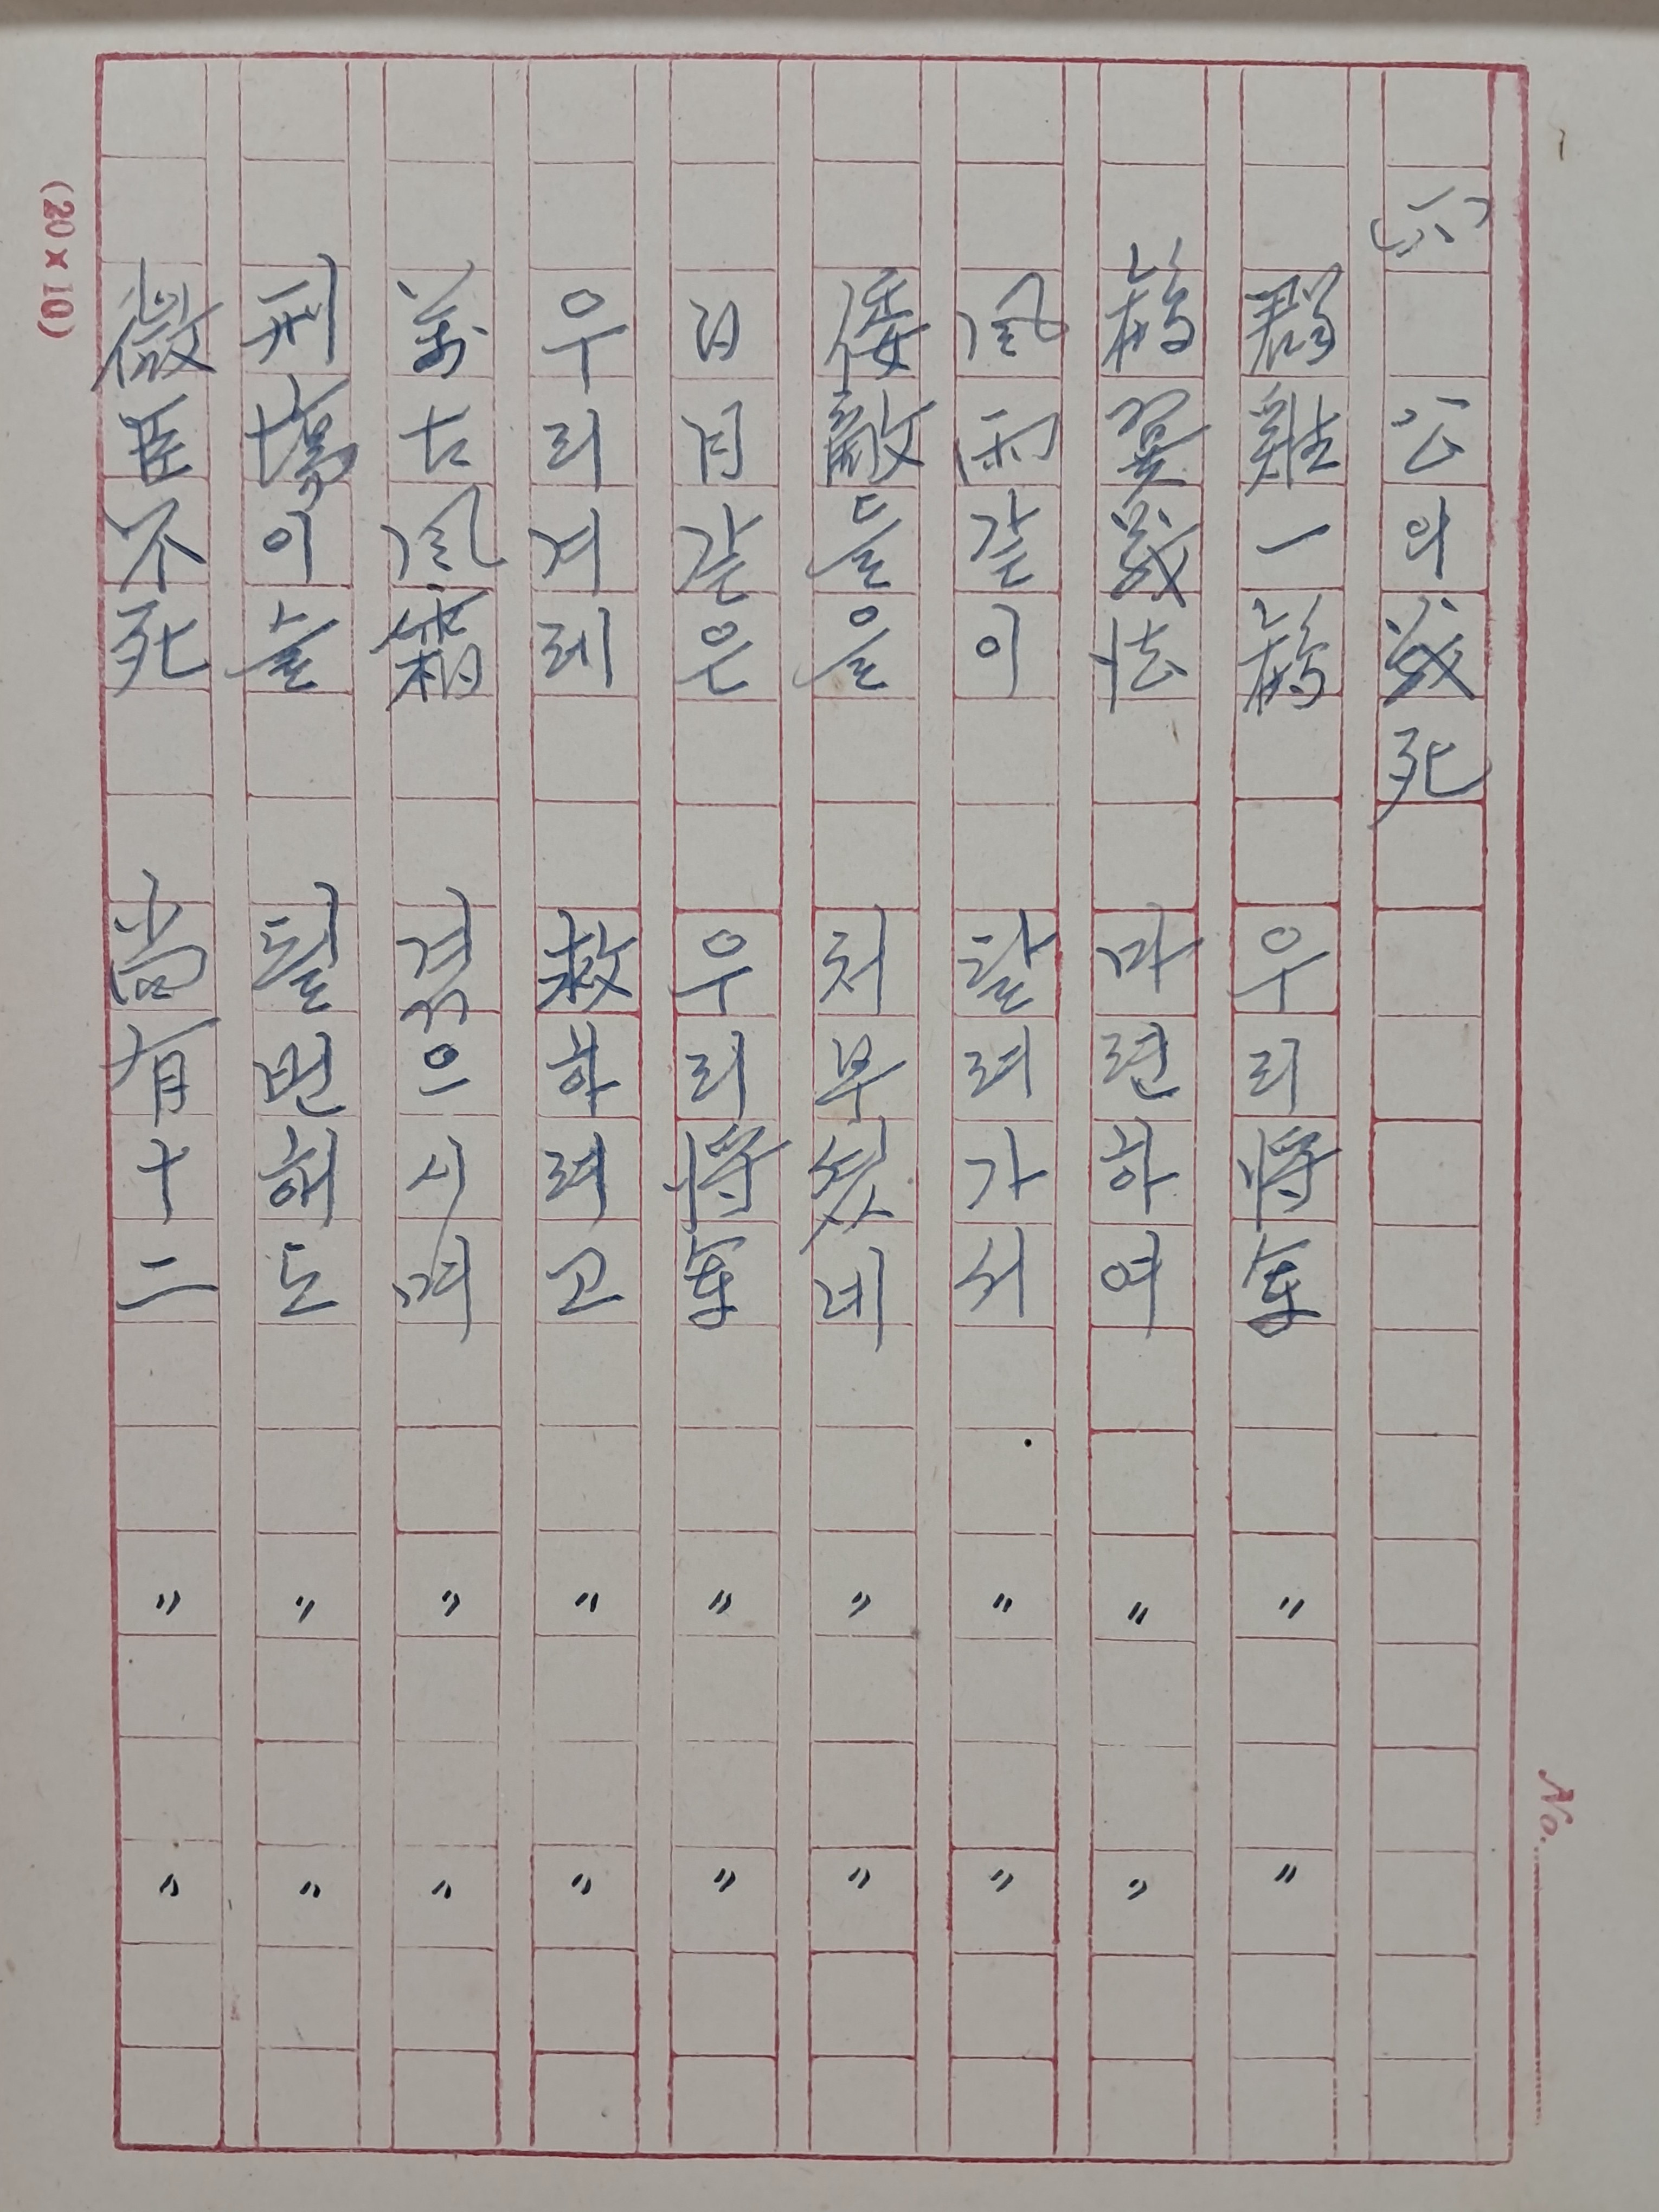 (六) 公의 戦死
群雞一鶴 우리將軍 〃 〃
鶴翼戦法 마련하여 〃 〃
風雨같이 달려가서 〃 〃
倭敵들을 처부셧네 〃 〃
日月같은 우리將軍 〃 〃
우리겨레 救하려고 〃 〃
萬古風霜 겪으시며 〃 〃
刑場이슬 될번해도 〃 〃
微臣不死 尚有十二 〃 〃
No.
(20×10)